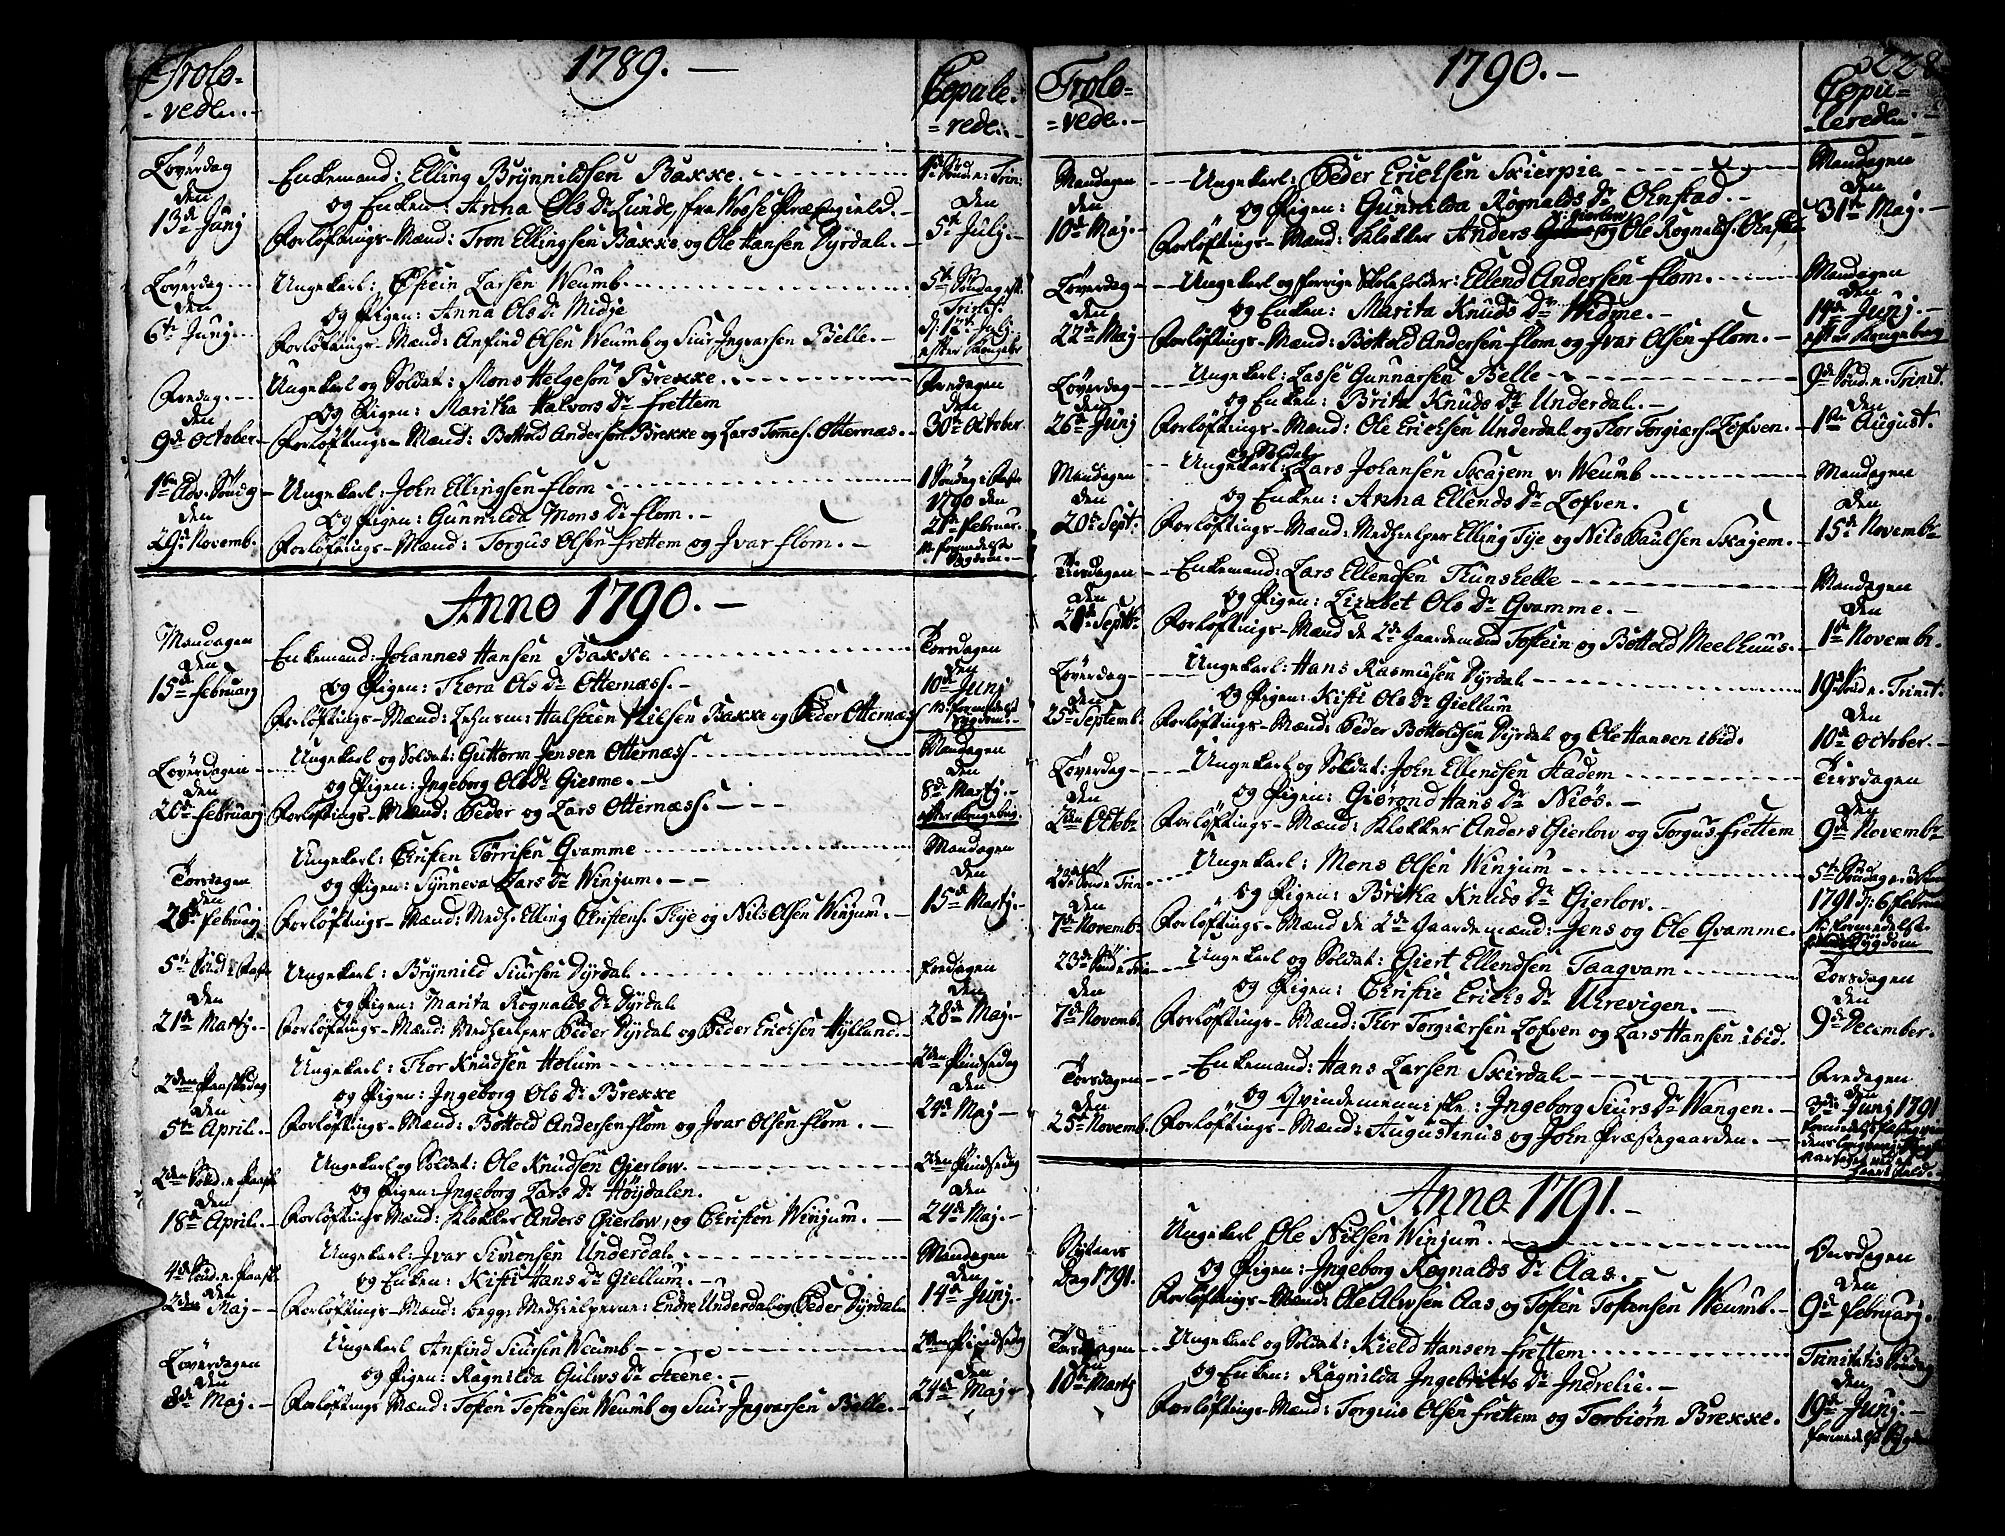 Trolo-
-vede.-
1789.-
Copule-
-rede.-
Löverdag
den
13de Junj
Enkemand: Elling Brÿnnildsen Baxxe.
og Enken: Anna Ols Dr Lunde, fra Wosse Præstegield.-
Forlöftings-Mænd: Tron Ellingsen Baxxe og Ole Hansen Dÿrdal.-
den
5te Julj.-
Löverdag
den
6te Junj.-
Ungekarl: Östein Larsen Weumb.
og Pigen: Anna Ols Dr Midje
Forlöftings-Mænd: Anfind Olsen Weumb og Siur Ingvarsen Belle.-
5te Söndag
Trinit:
12te Julj.
Fredag.
den
9de October
Ungekarl og Soldat: Mons Helgeson Brexxe.
og Pigen: Maritha Halvors Dr Frettem
Forlöftings-Mænd: Bottold Anderson Brexxe og Lars Tomes. Otternæs.-
Fredagen
den
30te October
1ste Adv. Söndg
den
29de Novemb.
Ungekarl: John Ellingsen Flom
Og Pigen: Gunnilda Mons Dr Flom.-
Forlöftings-Mænd: Torgus Olsen Frettem og Ivar Flom.-
1 Söndag i Faste
1790 den
21de Februar.
Anno 1790.-
Mandagen
den
15de Februarj
Enkemand: Johannes Hansen Baxxe
og Pigen: Thora Ols Dr Otternæss.-
Forlöftings-Mænd: Lehnsm: Halsteen Nilsen Baxxe og Peder Otternæs
Torsdagen
den
10de Junj
Löverdagen
den
20de Februarj
Ungekarl og Soldat: Guttorm Jensen Otternæss
og Pigen: Ingeborg Ols Dr Giesme.-
Forlöftings-Mænd: Peder og Lars Otternæss.-
Mandagen
den
8de Martj.-
Torsdagen
den
Februarj
Ungekarl: Christen Törrisen Qvamme
og Pigen: Sÿnneva Lars Dr Winjum.-
Forlöftings-Mænd: Medh. Elling Christens. Thÿe og Nils Olsen Winjum.-
Mandagen
den
15de Martj.-
5te Sönd i Faste
den
21de Martj.-
Ungekarl: Brÿnnild Siursen Dÿrdal
og Pigen: Marita Rognalds Dr Dÿrdal
Forlöftings-Mænd: Medhielper Peder Dÿrdal og Peder Ericksen Hÿlland.-
Fredagen
den
28de Maj.-
2den Paaskedag
den
5te April.-
Ungekarl: Thor Knudsen Holum
og Pigen: Ingeborg Ols Dr Brexxe
Forlöftings-Mænd: Bottold Andersen Flom og Ivar Olsen Flom.-
2den Pindsedag
den
24de Maj-
2den Sönd. e. Paaske
den
18de April.-
Ungekarl og Soldat: Ole Knudsen Gierlow.
og Pigen: Ingeborg Lars Dr Höÿdalen.
Forlöftings Mænd: Klokker Anders Gierlow, og Christen Winjum.-
2den Pindsedag
den
24de Maj.-
4de Sönd. e. Paaske
den
2den Maj-
Ungekarl: Ivar Simensen Underdal.
og Enken: Kisti Hans Dr Giellum.-
Forlöftings-Mænd: begge Medhielperne: Endre Underdal og Peder Dÿrdal
Mandagen
den
14de Junj.-
Löverdagen
den
8de Maj.-
Ungekarl Anfind Siursen Weumb
og Pigen: Ragnilda Gulws Dr Steene.-
Forlöftings Mænd: Tosten Tostensen Weumb og Siur Ingvarsen Belle.-
2den Pindsedag
den
24de Maj-
Trolo-
-vede.-
1790.-
228
Copu-
-lerede.-
Mandagen
den
10de Maj.-
Ungekarl: Peder Ericksen Skierpie
og Pigen: Gunnilda Rognalds Dr Olnstad.-
Forlöftings-Mænd: Klokker Anders Gierlow og Ole Rognalds. Olnstad
Mandagen
den
31te Maj.-
Löverdag
den
22de Maj
Ungekarl og forrige Skoleholder: Ellend Andersen Flom.
og Enken: Marita Knuds Dr Hidme.-
Forlöftings-Mænd: Bottold Andersen Flom og Ivar Olsen Flom.-
Mandagen
den
14de Junj.-
Löverdag
den
26de Junj
Ungekarl: Lasse Gunnarsen Belle
og Enken: Brita Knuds Dr Underdal.-
Forlöftings-Mænd: Ole Ericksen Underdal og Thor Torgiærs. Lofven.-
9de Sönd. e. Trinit.
den
1ste August.
Mandagen
den
20de Sept:
og Soldat
Ungekarl: Lars Johansen Skajem v. Weumb
og Enken: Anna Ellends Dr Lofven.
Forlöftings-Mænd: Medhielper Elling Tÿe og Nils Paulsen Skajem.-
Mandagen
den
15de Novembr
Tirsdagen
den
Septbr
Enkemand: Lars Ellendsen Thunshelle
og Pigen: Lizabet Ols Dr Qvamme.-
Forlöftings-Mænd de 2de Gaardemænd Tostein og Bottold Meelhuus.-
Mandagen
den
1ste Novembr.
Löverdag
den
25de Septemb:
Ungekarl: Hans Rasmusen Dÿrdal
og Pigen: Kisti Ols Dr Giellum
Forlöftings-Mænd: Peder Bottoldsen Dÿrdal og Ole Hansen ibid.
19de Sönd. e. Trinit.
den
10de October.-
Löverdag
den
2den Octobr
Ungekarl og Soldat: John Ellendsen Stadem
og Pigen: Giörond Hans Dr Niös.-
Forlöftings-Mænd: Klokker Anders Gierlow og Torgus Frettem
Tirsdagen
den
9de Novembr
23de Sönd. e. Trin.
den
7de Novemb:
Ungekarl: Mons Olsen Winjum
og Pigen: Britha Knuds Dr Gierlow.-
Forlöftings-Mænd de 2de Gaardemænd: Jens og Ole Qvamme.
5te Söndag e.
1791 D: 6 Februar
formedelst
Sÿgdom
23de Sönd e Trin
den
7de Novemb:
Ungekarl og Soldat: Giert Ellendsen Taagvam
og Pigen: Christie Ericks Dr Ulrevigen.-
Forlöftings-Mænd: Thor Torgiærsen Lofven og Lars Hansen ibid.
Torsdagen
den
9de December.
Torsdagen
den
25de Novemb.
Enkemand: Hans Larsen Skirdal
og Qvindemenniske: Ingeborg Siurs Dr Wangen.-
Forlöftings-Mænd: Augustinus og John Præstegaarden.-
Fredagen
den
3de Junj 1791
Anno 1791.-
Nÿtaars
Dag 1791.
Ungekarl Ole Nilsen Winjum.
og Pigen: Ingeborg Rognalds Dr Aas.
Forlöftings-Mænd: Ole Alwsen Aas og Tosten Tostensen Weumb.-
Onsdagen
den
9de Februarj.
Torsdagen
den
10de Martj
Ungekarl og Soldat: Kield Hansen Frettem
og Enken: Ragnilda Ingebricts Dr Indrelie.-
Forlöftings-Mænd: Torgus Olsen Frettem og Torbiörn Brexxe.
Trinitatis Söndag
den
19de Junj.-
formedelst Sÿgdom